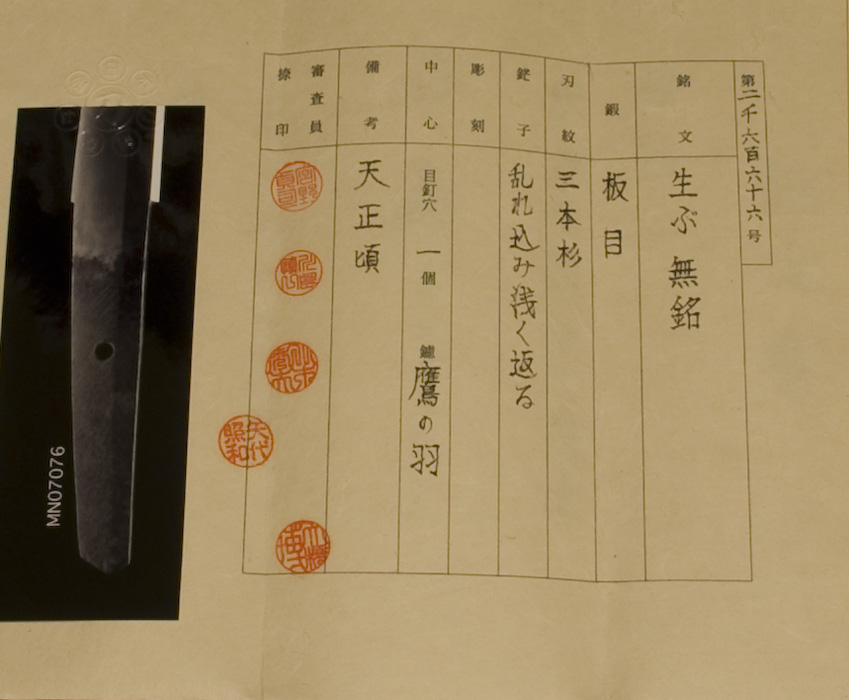 第二千六百六十六号
銘文
生ぶ 無銘
鍛
板目
刃紋
三本杉
鋩子
乱れ込み浅く返る
彫刻
中心
目釘穴 一個 鑢 鷹の羽
備考
天正頃
審査員
捺印
矢代
昭和
MN07076